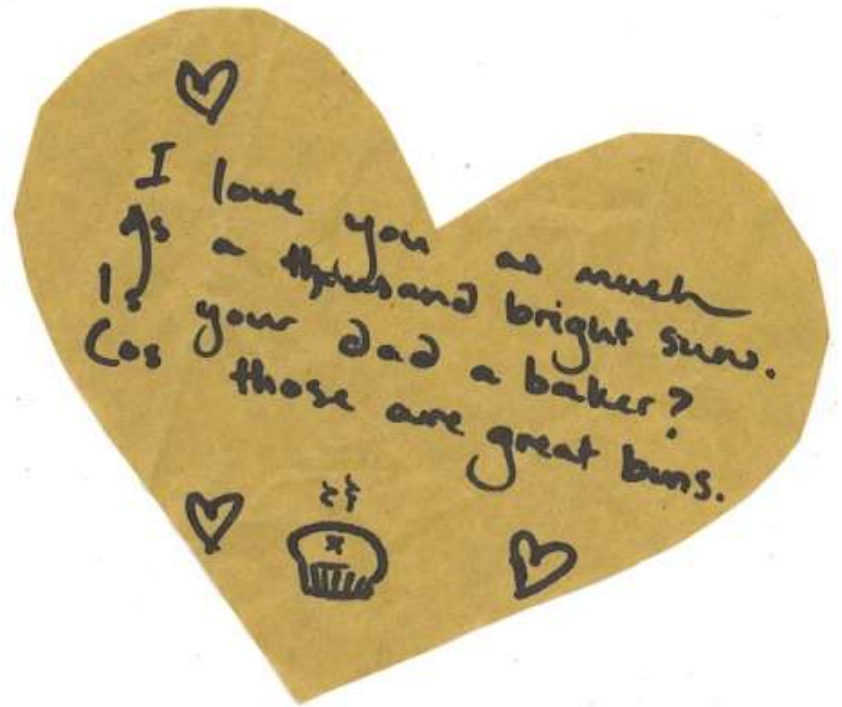 I love you as much
As a thousand bright suns.
Is your dad a baker?
Cos those are great buns.